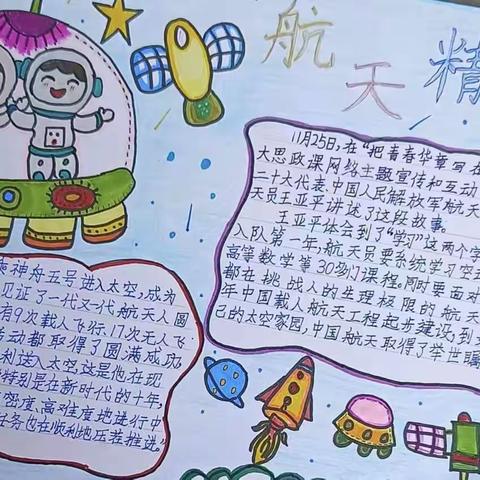 航天精
11月25日,在“把青春华章写在
大思政课网络主题宣传和互动
二十大代表、中国人民解放军航天
天员王亚平讲述了这段故事。
王亚平体会到了“学习”这两个字
入队第一年,航天员要系统学习空
高等数学等30多门课程。同时要面对
都在挑战人的生理极限的航天
年中国载人航天工程起步建设,到
己的太空家园,中国航天取得了举世瞩
乘神舟五号进入太空,成为
见证了一代又一代航天人圆
有9次载人飞行、17次无人飞
动都取得了圆满成功
利进入太空,这是他在现
特别是在新时代的十年,
密度、高难度地进行中
任务也在顺利地压茬推进。”